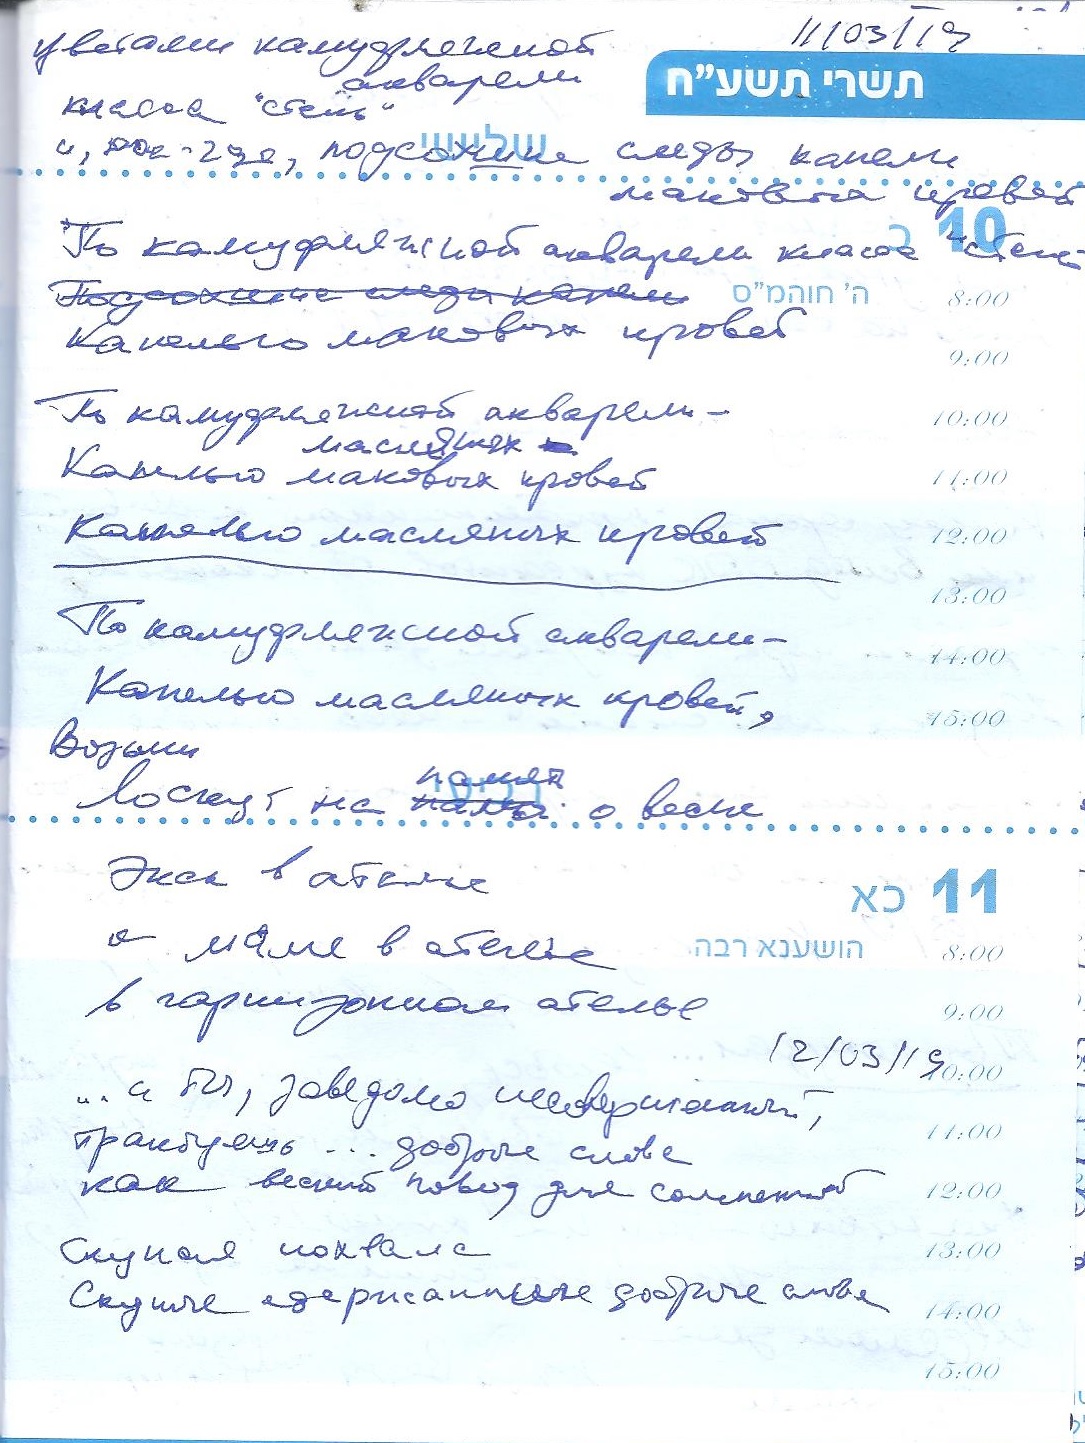 11/03/19
цветами камуфляжной
акварели
תשרי תשע"ח
класса "степь"
שלישי
и, кое-где, подсохшие следы капели
маковых кровей
10 כ
По камуфляжной акварели класса "степь"
Подсохшие следы капели
ה' חוהמ"ס
8:00
Капелью маковых кровей
9:00
По камуфляжной акварели –
10:00
масляных
Капелью маковых кровей
11:00
Капелью масляных кровей
12:00
13:00
По камуфляжной акварели –
14:00
Капелью масляных кровей,
15:00
Возьми
памят
רביעי
Лоскут на о весне
Экск в ателье
11 כא
о маме в ателье
הושענא רבה
8:00
в гарнизонном ателье
9:00
12/03/19
10:00
... и ты, заведомо несовершенный,
11:00
трактуешь ... доброе слово
как веский повод для сомнений
12:00
Скупая похвала
13:00
Скупые сдержанные добрые слова
14:00
15:00